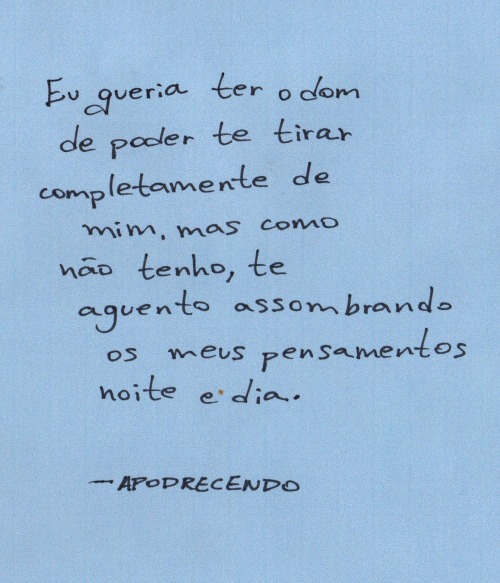 Eu queria ter o dom
de poder te tirar
completamente de
mim, mas como
não tenho, te
aguento assombrando
os meus pensamentos
noite e dia.
—APODRECENDO